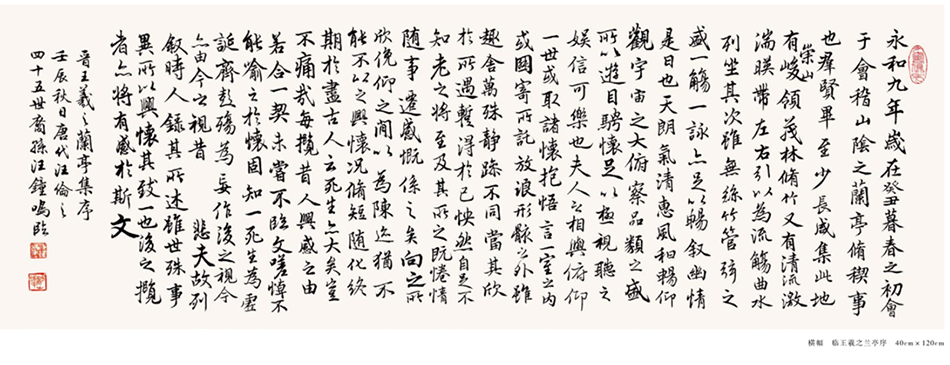 永和九年歲在癸丑暮春之初會
于會稽山陰之蘭亭脩稧事
也群賢畢至少長咸集此地
有崇山峻領茂林脩竹又有清流激
湍暎帶左右引以為流觴曲水
列坐其次雖無絲竹管弦之
盛一觴一詠亦足以暢叙幽情
是日也天朗氣清惠風和暢仰
觀宇宙之大俯察品類之盛
所以遊目騁懷足以極視聽之
娛信可樂也夫人之相與俯仰
一世或取諸懷抱悟言一室之內
或因寄所託放浪形骸之外雖
趣舍萬殊靜躁不同當其欣
於所遇暫得於己怏然自足不
知老之將至及其所之既惓情
隨事遷感慨係之矣向之所
欣俛仰之閒以為陳迹猶不
能不以之興懷況脩短隨化終
期於盡古人云死生亦大矣豈
不痛哉每攬昔人興感之由
若合一契未嘗不臨文嗟悼不
能喻之於懷固知一死生為虛
誕齊彭殤為妄作後之視今
亦由今之視昔 悲夫故列
叙時人錄其所述雖世殊事
異所以興懷其致一也後之攬
者亦將有感於斯文
晉王羲之蘭亭集序
壬辰秋日唐代汪倫之
四十五世裔孫汪鐘鳴臨
横幅 临王羲之兰亭序 40cm×120cm